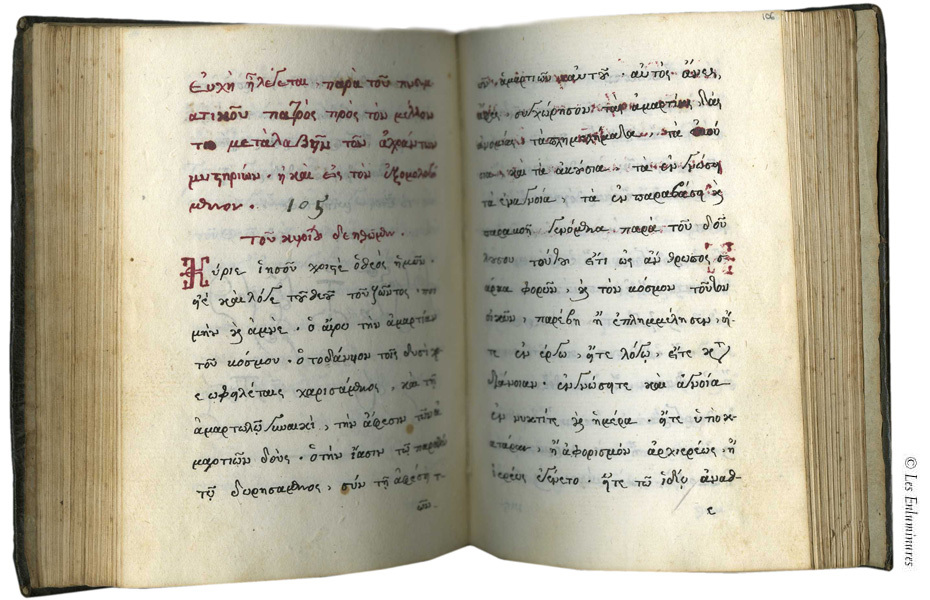 Εὐχὴ ἣ λέγεται παρὰ τοῦ πνευμ
ατικοῦ πατρὸς πρὸς τὸν μέλλον
τα μεταλαβῆν τῶν ἀχράντων
μυστηρίων. ἢ καὶ εἰς τὸν ἐξομολογού
μενον. 105
τοῦ κυρίου δεηθῶμεν.
Κύριε ἰησοῦ χριστὲ ὁ θεὸς ἡμῶν.
υἱὲ καὶ λόγε τοῦ θεοῦ τοῦ ζῶντος. ποι
μὴν καὶ ἀμνὲ. ὁ αἴρων τὴν ἀμαρτίαν
τοῦ κόσμου. ὁ τὸ δάνειον τοῖς δυσὶ χρ
εωφηλέταις χαρισάμενος, καὶ τῇ
ἁμαρτωλῷ γυναικὶ, τὴν ἄφεσιν τῶν ἁ
μαρτιῶν δούς. ὁ τὴν ἴασιν τῷ παραλυ
τῷ δωρησάμενος, σύν τῇ ἀφέσῃ τ
ῶν.
106
ῶν ἁμαρτιῶν αὐτοῦ. αὐτὸς ἄνες,
ἄφες, συγχώρησον. τὰς ἁμαρτίας, τὰς
ἀνομίας, τὰ πλημμελήματα, τὰ ἑκού
σια, καὶ τὰ ἀκούσια, τὰ ἐν γνώσῃ
τὰ ἐν ἀγνοία, τὰ ἐν παραβάσῃ καὶ
παρακοῇ γενόμενα παρὰ τοῦ δού
λου σου τούτου. εἴ τι ὡς ἄνθρωπος σ
άρκα φορῶν, καὶ τὸν κόσμον τοῦτον
οἰκῶν, παρέβη ἢ ἐπλημμέλησεν, ἤ
τε ἐν ἔργω, ἤτε λόγῳ, εἴτε κατὰ
διάνοιαν. ἐν γνώσῃ τε καὶ ἀγνοία
ἐν νυκτίτε καὶ ἡμέρα. ἤτε ὑπὸ κ
ατάραν, ἢ ἀφορισμὸν ἀρχιερέως. ἢ
ἱερέως ἐγένετο. ἤτε τῶ ἰδίῳ ἀναθ
ε
© Les Enluminures